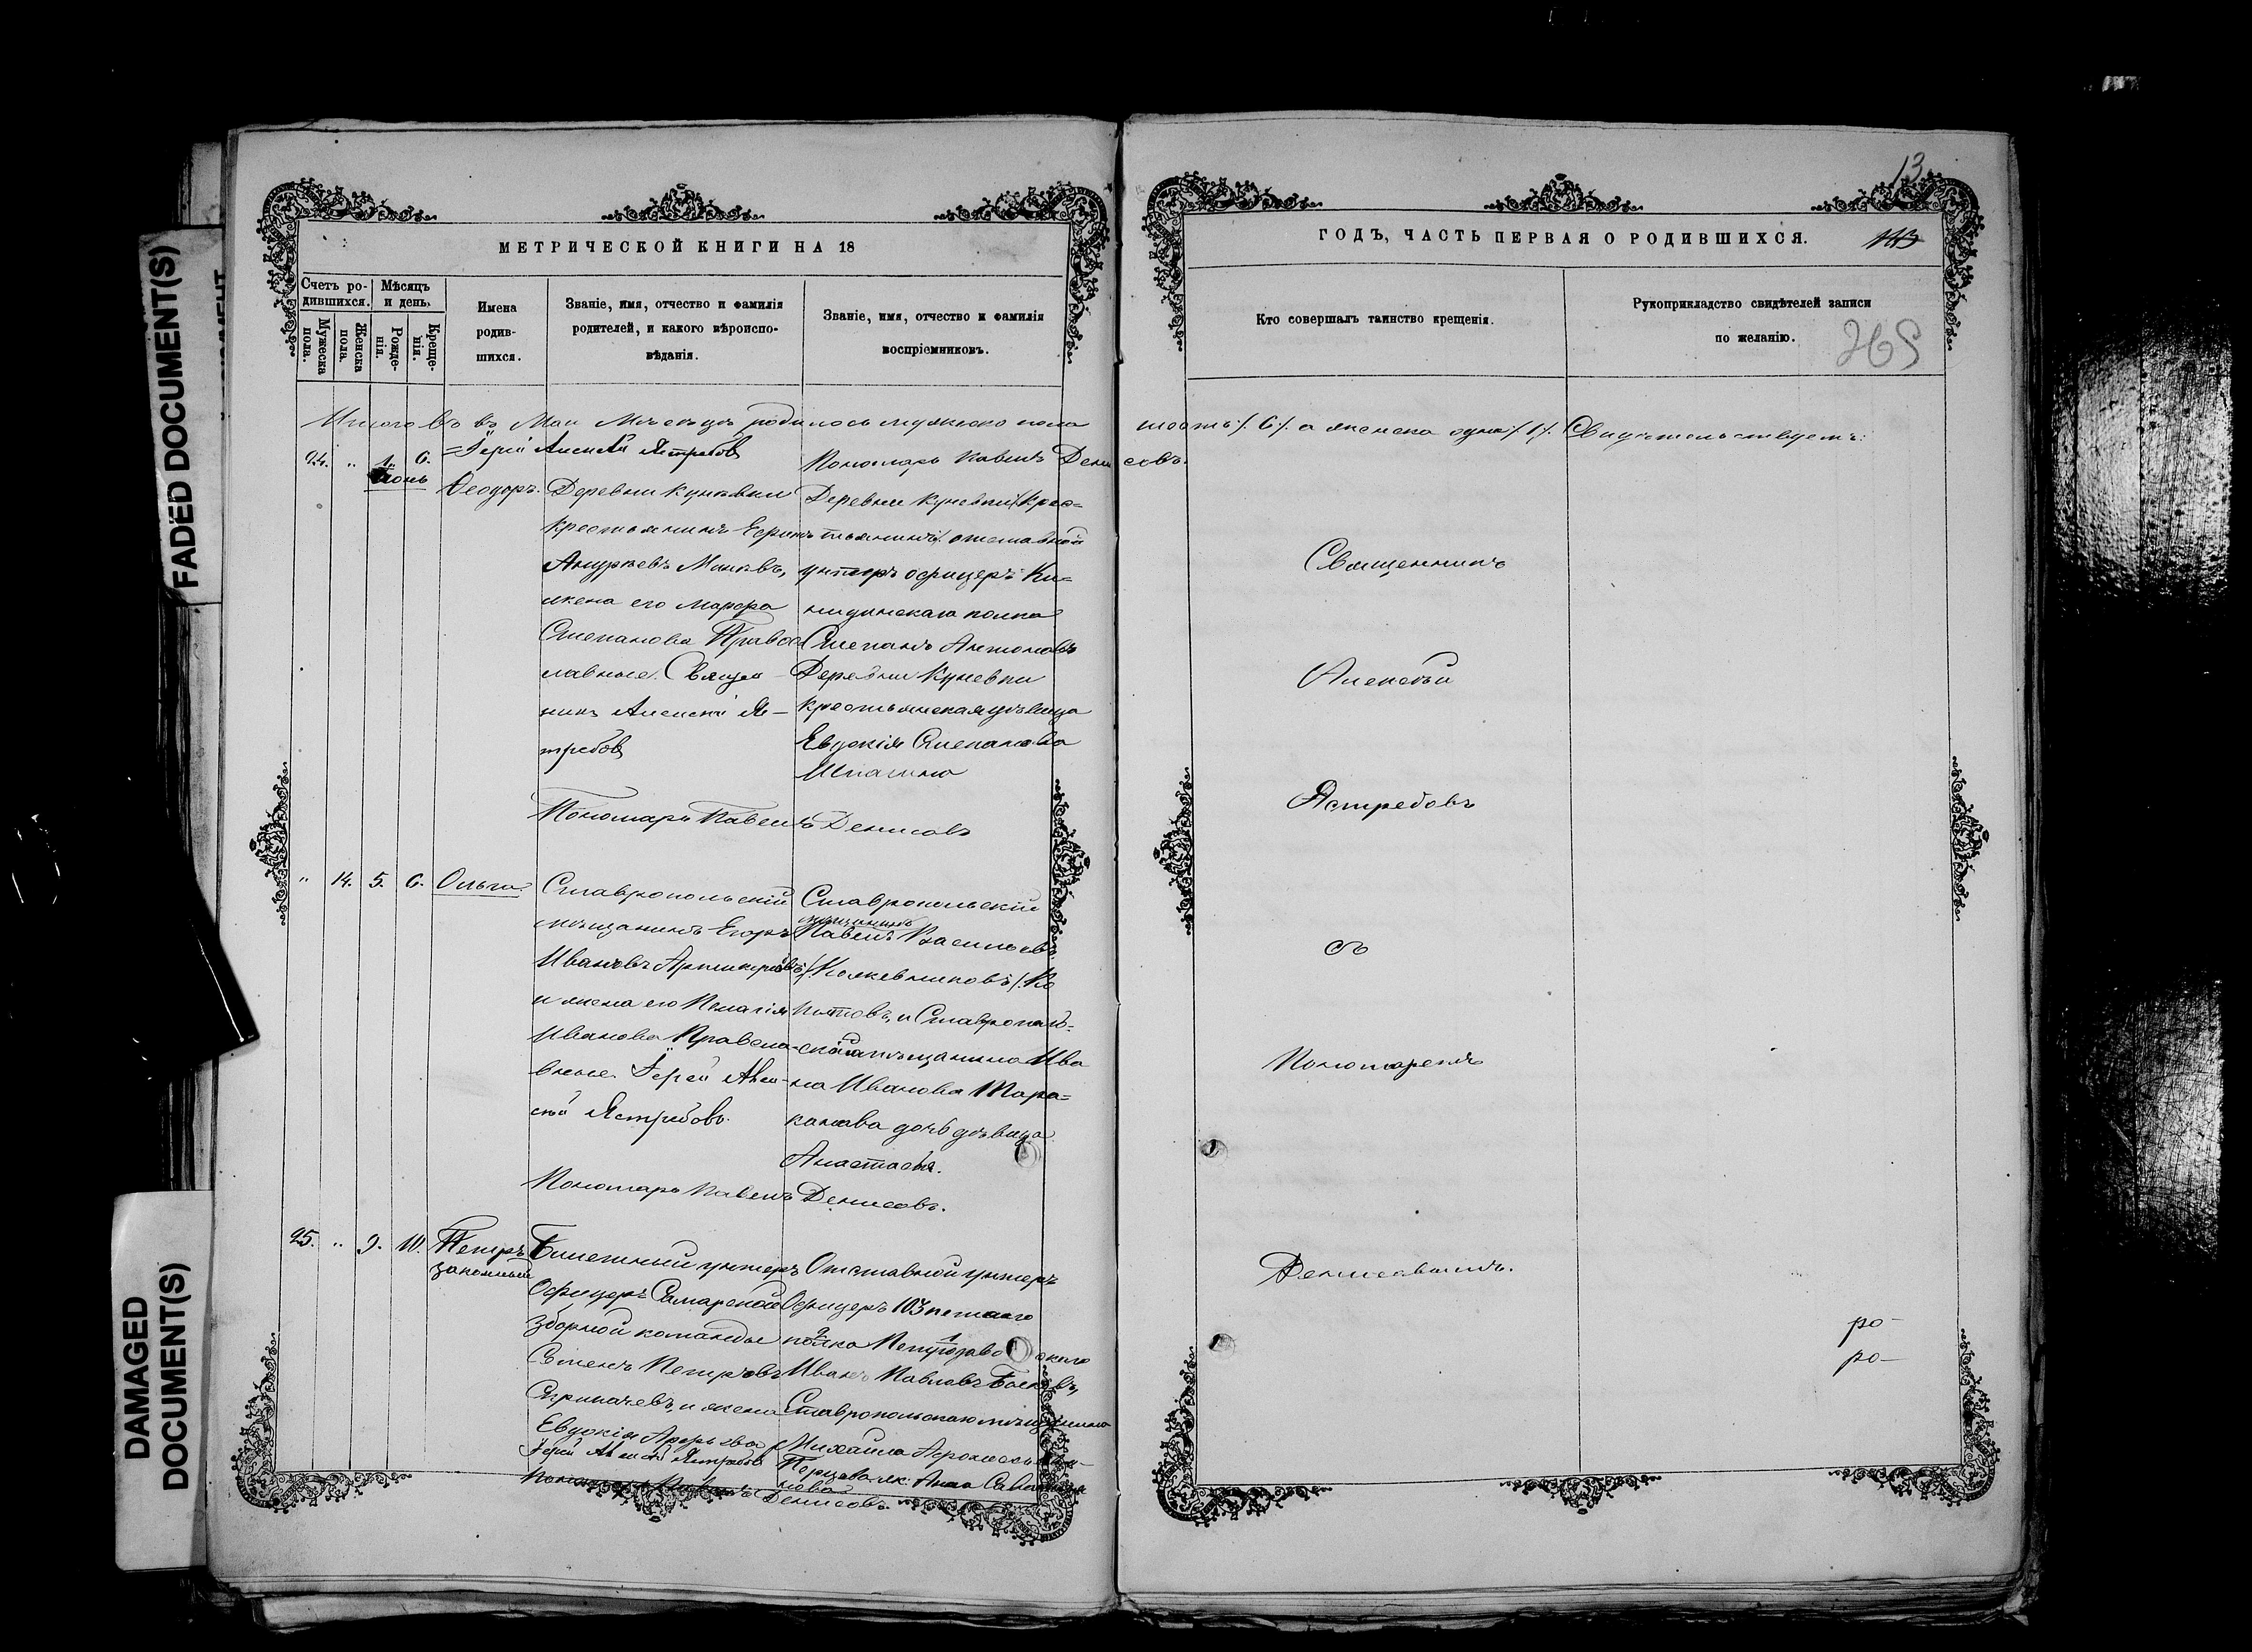 FADED DOCUMENT(S)
DAMAGED
DOCUMENT(S)
МЕТРИЧЕСКОЙ КНИГИ НА 18
Счетъ ро-
дившихся.
Мѣсяцъ
и день.
Мужеска
пола.
Женска
пола.
Рожде-
нія.
Креще-
нія.
Имена
родив-
шихся.
Званіе, имя, отчество и фамилія
родителей, и какого вѣроиспо-
вѣданія.
Званіе, имя, отчество и фамилія
воспріемниковъ.
въ Маи Мѣсяцѣ родилось мужеско пола
Іерей Алексѣй Ястребовъ
Пономарь Павелъ Денисовъ.
24. " 1. 6.
Іюнь
Ѳеодоръ.
Деревни Кунѣвки
крестьянинъ
жена его Марфа
Степанова Правос
лавные. Священ
никъ Алексѣй Яс-
требовъ
Деревни Куневки /крес=
тьянинъ/ отставной
унтеръ офицеръ
полка
Степанъ Антоновъ
Деревни Куневки
крестьянская дѣвица
Евдокія Степанова
Пономарь Павелъ Денисовъ
" 14. 5. 6. Ольга
Ставропольскій
мѣщанинъ Егоръ
Ивановъ
и жена его Пелагія
Иванова Правосла-
вные. Іерей Алек-
сѣй Ястребовъ.
Ставропольскій
мѣщанинъ
Павелъ Васильевъ
/Кожевниковъ/ Ко
пытовъ, и Ставрополь-
скаго мѣщанина Ива
на Иванова Тара=
канова дочь дѣвица
Анастасія.
Пономарь Павелъ Денисовъ.
25. " 9. 10. Петръ
законный
Билетный унтеръ
Офицеръ Самарской
Зборной команды
Семенъ Петровъ
и жена
Евдокія
Іерей Алексѣй Ястребовъ
Отставной унтеръ
Офицеръ 103 пехаго
полка Петрозаводскаго
Иванъ Павловъ
Ставропольскаго мѣщанина
Михаила
Анна
Пономарь Павелъ Денисовъ.
13
ГОДЪ, ЧАСТЬ ПЕРВАЯ О РОДИВШИХСЯ.
113
Кто совершалъ таинство крещенія.
Рукоприкладство свидѣтелей записи
по желанію.
265
шесть /6/. а женска одна /1/. Свидѣтельствуемъ:
Священникъ
Алексѣй
Ястребовъ
съ
Пономаремъ
Денисовымъ.
ро-
ро-